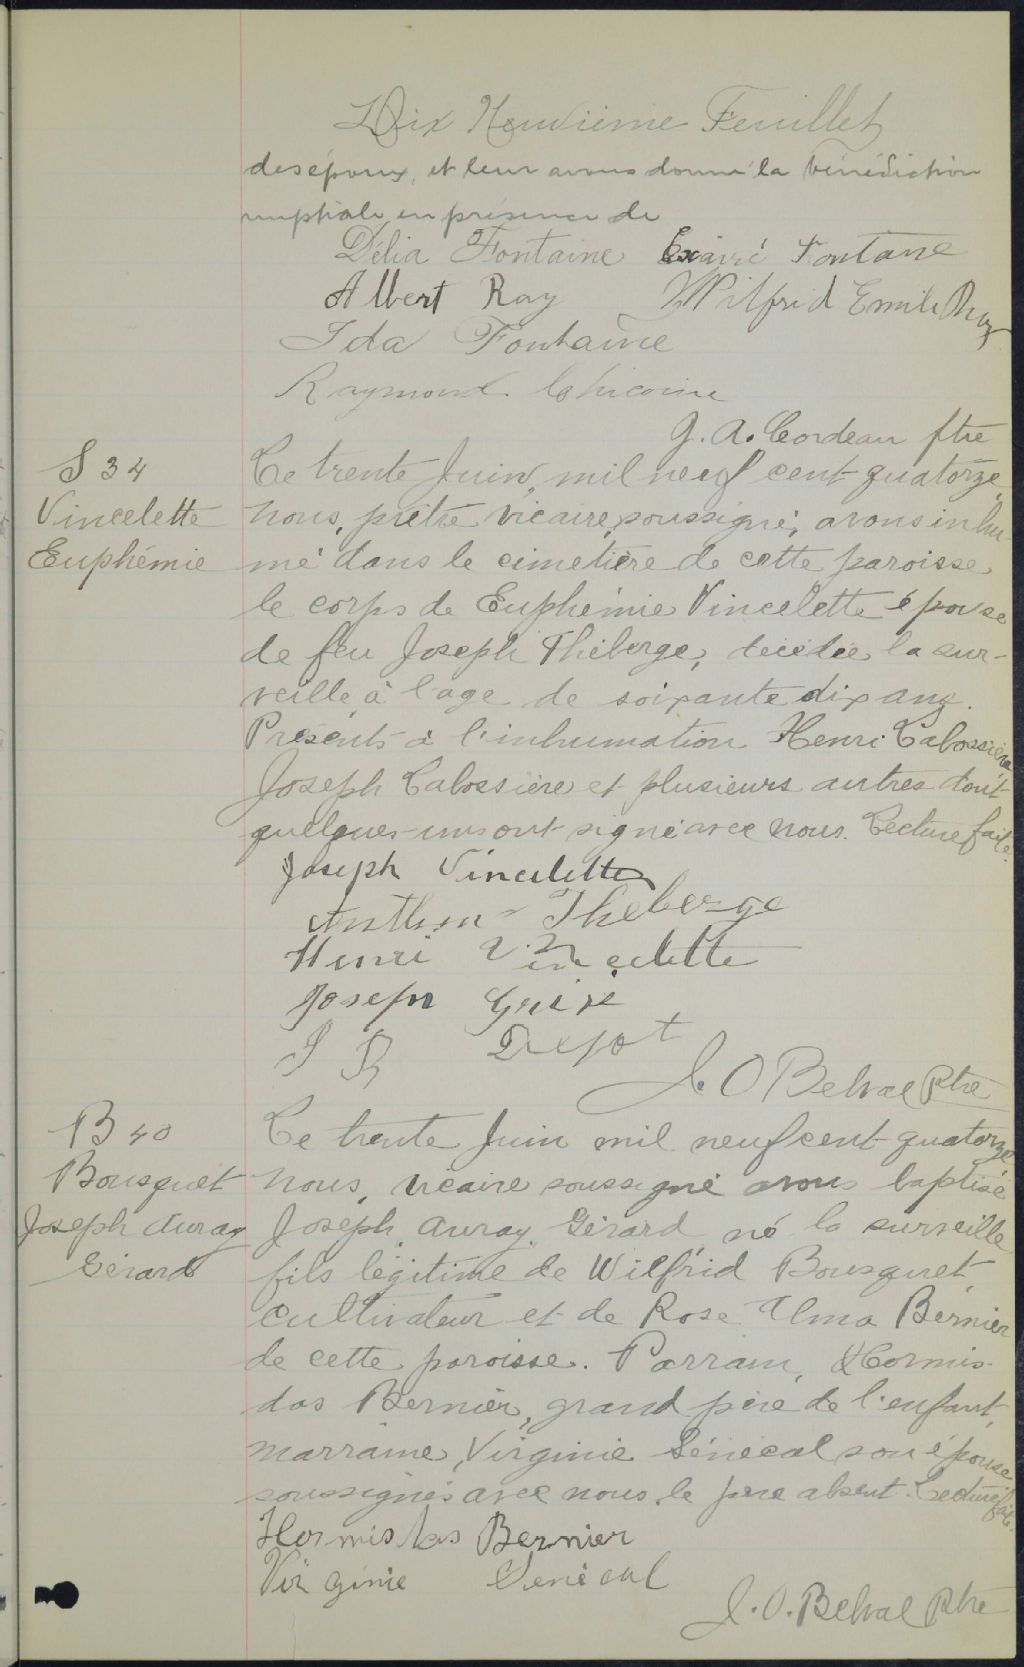 Dix Neuvième Feuillet
des époux, et leur avons donné la bénédiction
nuptiale en présence de
Délia Fontaine Exavré Fontane
Albert Ray Wilfrid Emile Roy
Ida Fontaine
Raymond Chicoine
J. A. Cordeau ptre
S 34
Vincelette
Euphémie
Ce trente Juin, mil neuf cent quatorze,
nous, prêtre vicaire, soussigné, avons inhu-
mé dans le cimetière de cette paroisse
le corps de Euphémie Vincelette épouse
de feu Joseph Théberge, décédée la sur-
veille, à l'age de soixante dix ans.
Présents à l'inhumation Henri Labossière
Joseph Labossière et plusieurs autres dont
quelques-uns ont signé avec nous. Lecture faite.
Joseph Vincelette
Théberge
Henri Vincelette
Joseph Guire
J R
J. O Belval Ptre
B 40
Bousquet
Joseph Auray
Gérard
Ce trente Juin mil neuf cent quatorze
nous, vicaire soussigné avons baptisé
Joseph, Auray, Gérard né la surveille
fils légitime de Wilfrid Bousquet,
cultivateur et de Rose Alma Bernier
de cette paroisse. Parrain, Hormis-
das Bernier, grand père de l'enfant,
marraine, Virginie Sénécal son épouse
soussignés avec nous, le père absent. Lecture faite.
Hormisdas Bernier
Virginie Senécal
J. O. Belval Ptre